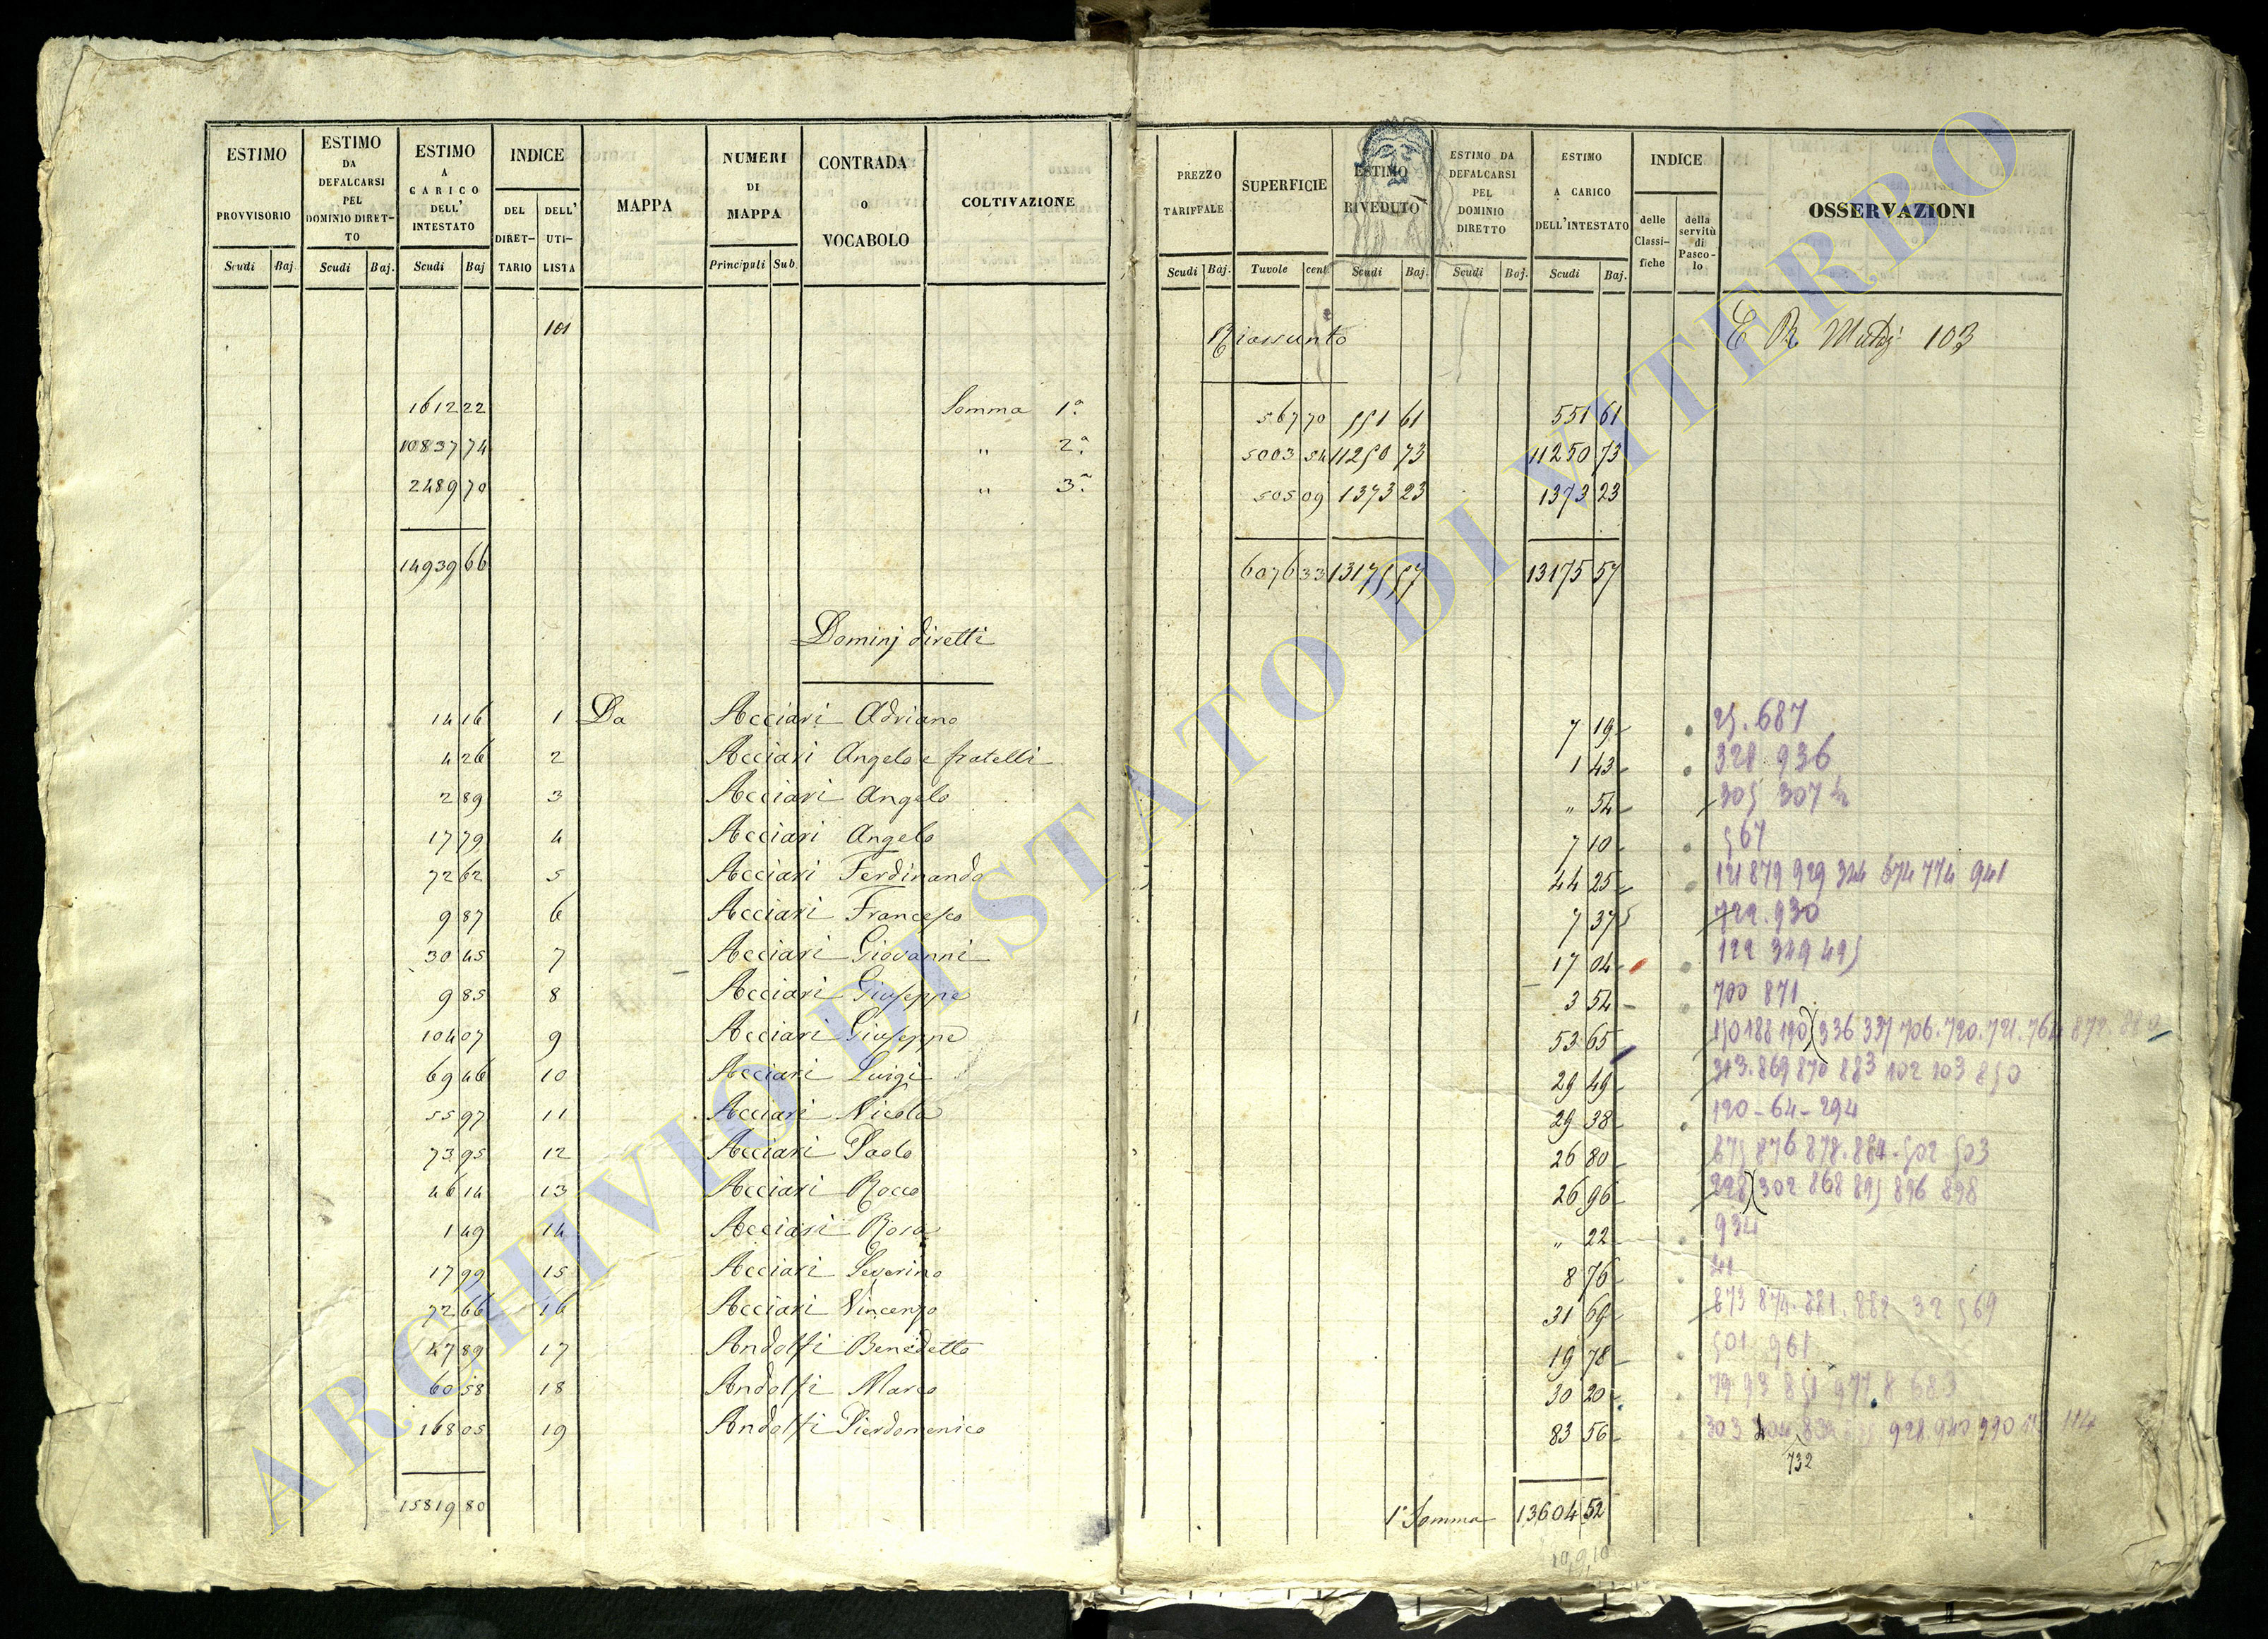 ESTIMO PROVVISORIO Scudi Baj.
ESTIMO DA DEFALCARSI PEL DOMINIO DIRET-TO Scudi Baj.
ESTIMO A CARICO DELL' INTESTATO Scudi Baj
INDICE DEL DIRET-TARIO DELL' UTI-LISTA
MAPPA
NUMERI DI MAPPA Principali Sub.
CONTRADA O VOCABOLO
COLTIVAZIONE
PREZZO TARIFFALE Scudi Baj.
SUPERFICIE Tavole cent.
ESTIMO RIVEDUTO Scudi Baj.
ESTIMO DA DEFALCARSI PEL DOMINIO DIRETTO Scudi Baj.
ESTIMO A CARICO DELL'INTESTATO Scudi Baj.
INDICE delle Classi-fiche della servitù di Pasco-lo
OSSERVAZIONI
101 Riassunto E R 103
1612 22 Somma 1ª 567 70 551 61 551 61
10837 74 " 2ª 5003 54 11250 73 11250 73
2489 70 " 3ª 505 09 1373 23 1373 23
14939 66 6076 33 13175 57 13175 57
Dominj diretti
14 16 1 Da Acciari Adriano 7 19 25. 687
4 26 2 Acciari Angelo e fratelli 1 43 328 936
2 89 3 Acciari Angelo " 54 305 307
17 79 4 Acciari Angelo 7 10 567
72 62 5 Acciari Ferdinando 44 25 121 879 929 324 674 774 941
9 87 6 Acciari Francesco 7 37 722. 930
30 45 7 Acciari Giovanni 17 04 122 349 495
9 85 8 Acciari Giuseppe 3 54 700 871
104 07 9 Acciari Giuseppe 53 65 150 188 190 336 337 706. 720. 721. 764 872.
69 46 10 Acciari Luigi 29 49 313. 869 870 883 102 103 850
55 97 11 Acciari Nicola 29 38 120 - 64 - 294
73 95 12 Acciari Paolo 26 80 875 876 878. 884. 502 503
46 14 13 Acciari Rocco 26 96 298 302 868 895 896 898
1 49 14 Acciari Rosa " 22 934
17 99 15 Acciari Severino 8 76
72 66 16 Acciari Vincenzo 31 69 873 874. 881. 882 32 569
47 89 17 Andolfi Benedetto 19 78 501 961
60 58 18 Andolfi Marco 30 20 79 93 851 977. 8 683
168 05 19 Andolfi Pierdomenico 83 56 303 928 940 990 114
732
15819 80 1ª Somma 13604 52
ARCHIVIO DI STATO DI VITERBO